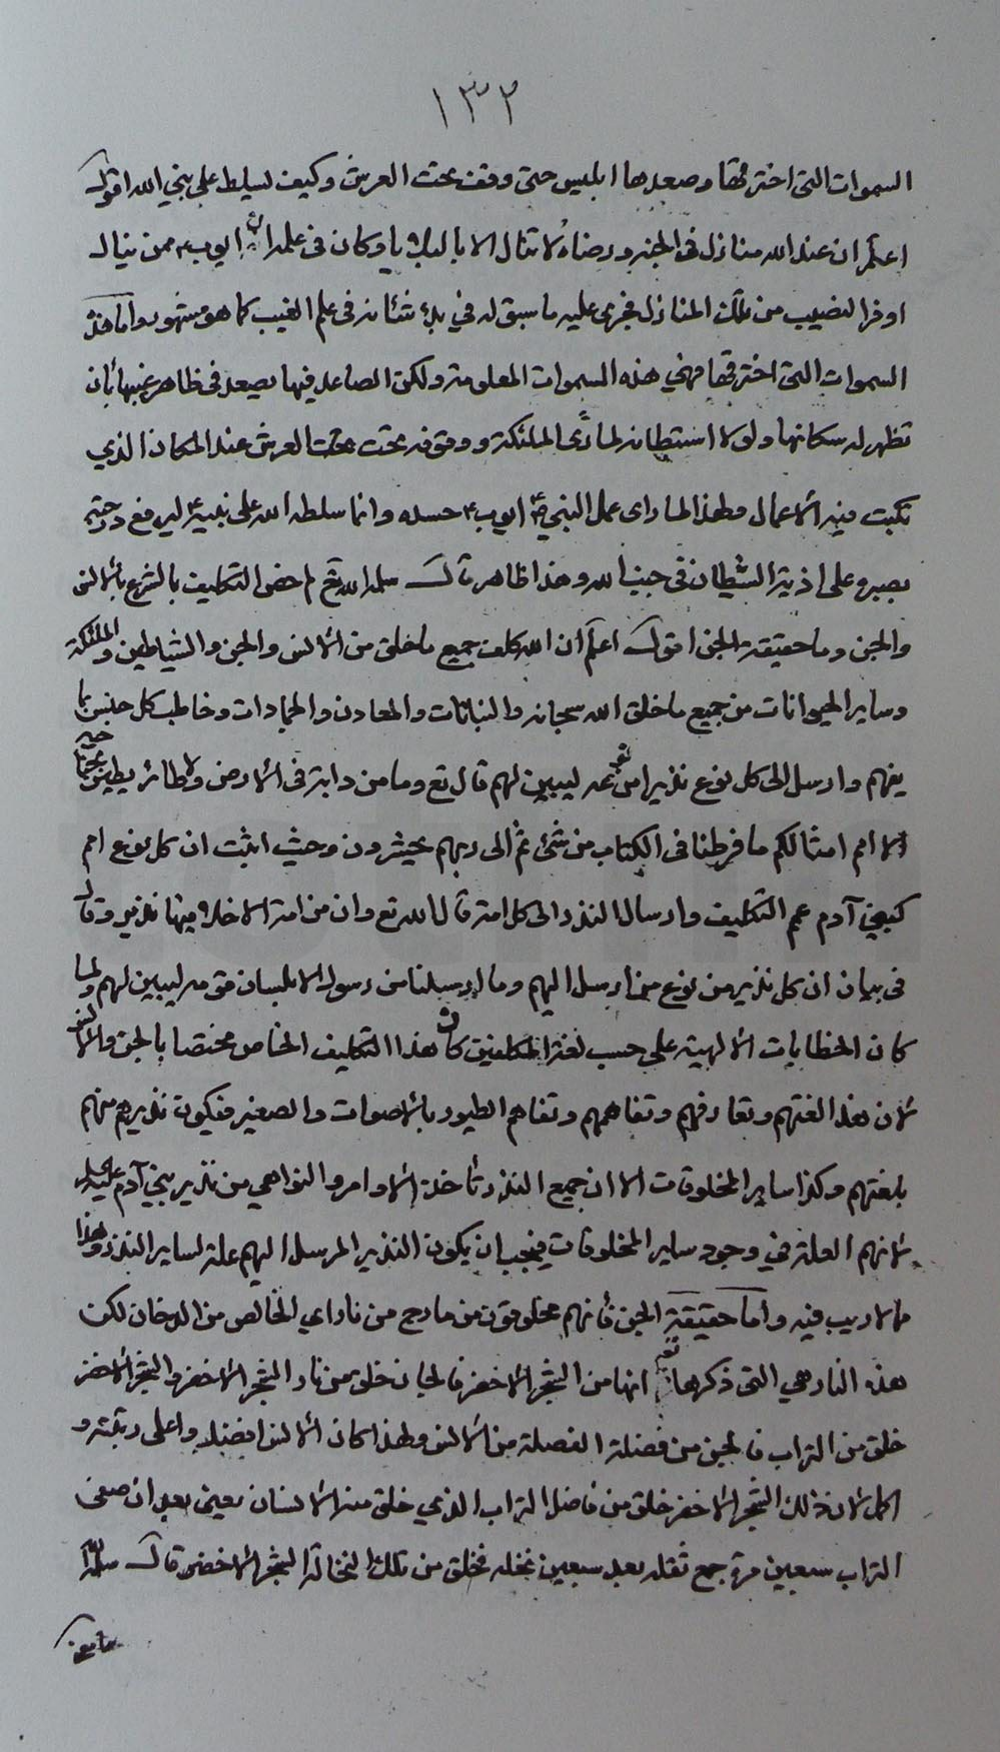 ١٣٢
السموات التى اخترقها وصعدها ابليس حتى وقف تحت العرش وكيف تسلط على نبي الله اقول
اعلم ان عند الله منازل فى الجنة ورضاه لا تنال الا بالبلايا وكان فى علمه ان ايوب ع ممن ينال
اوفر النصيب من تلك المنازل فجرى عليه ما سبق له في بدء شأنه فى علم الغيب كما هو مشهور واما هذه
السموات التى اخترقها فهي هذه السموات المعلومة ولكن الصاعد فيها يصعد فى ظاهر غيبها بان
تظهر له سكانها ولولا استيطانه لما رأى الملئكة ووقوفه تحت تحت العرش عند المكان الذي
تكتب فيه الاعمال ولهذا لما راى عمل النبي ايوب ع حسده وانما سلطه الله على نبيه ع ليرفع درجته
بصبره على اذية الشيطان فى جنب الله وهذا ظاهر قال سلمه الله تع لم اختص التكليف بالشرع بالانس
والجن وما حقيقة الجن اقول اعلم ان الله كلف جميع ما خلق من الانس والجن والشياطين والملئكة
وساير الحيوانات من جميع ما خلق الله سبحانه والنباتات والمعادن والجمادات وخاطب كل جنس بما
يفهم وارسل الى كل نوع نذيرا من نوعه ليبين لهم قال تع وما من دابة فى الارض ولا طائر يطير بجناحيه
الا امم امثالكم ما فرطنا فى الكتاب من شئ ثم الى ربهم يحشرون وحيث اثبت ان كل نوع امم
كبني آدم عمم التكليف وارسال النذر الى كل امة قال الله تع وان من امة الا خلا فيها نذير وقال
فى بيان ان كل نذير من نوع من ارسل اليهم وما ارسلنا من رسول الا بلسان قومه ليبين لهم ولما
كان الخطابات الالهية على حسب لغة المكلفين كان هذا التكليف الخاص مختصا بالجن والانس
لان هذا لغتهم وتعارفهم وتفاهمهم وتفاهم الطيور بالاصوات والصفير فيكون نذيرهم منهم
بلغتهم وكذا ساير المخلوقات الا ان جميع النذر تأخذ الاوامر والنواهي من نذير بني آدم عليه السلام
لانهم العلة في وجود ساير المخلوقات فيجب ان يكون النذير المرسل اليهم علة لساير النذر وهذا
مما لا ريب فيه واما حقيقة الجن فانهم مخلوقون من مارج من نار اي الخالص من الدخان لكن
هذه النار هي التى ذكرها تع انها من الشجر الاخضر فالجان خلق من نار الشجر الاخضر والشجر الاخضر
خلق من التراب فالجن من فضلة الفضلة من الانس ولهذا كان الانس افضل واعلى رتبة و
اكمل لان ذلك الشجر الاخضر خلق من فاضل التراب الذي خلق منه الانسان يعني بعد ان صفى
التراب سبعين مرة جمع ثفله بعد سبعين نخلة فخلق من تلك النخالة الشجر الاخضر قال سلمه الله